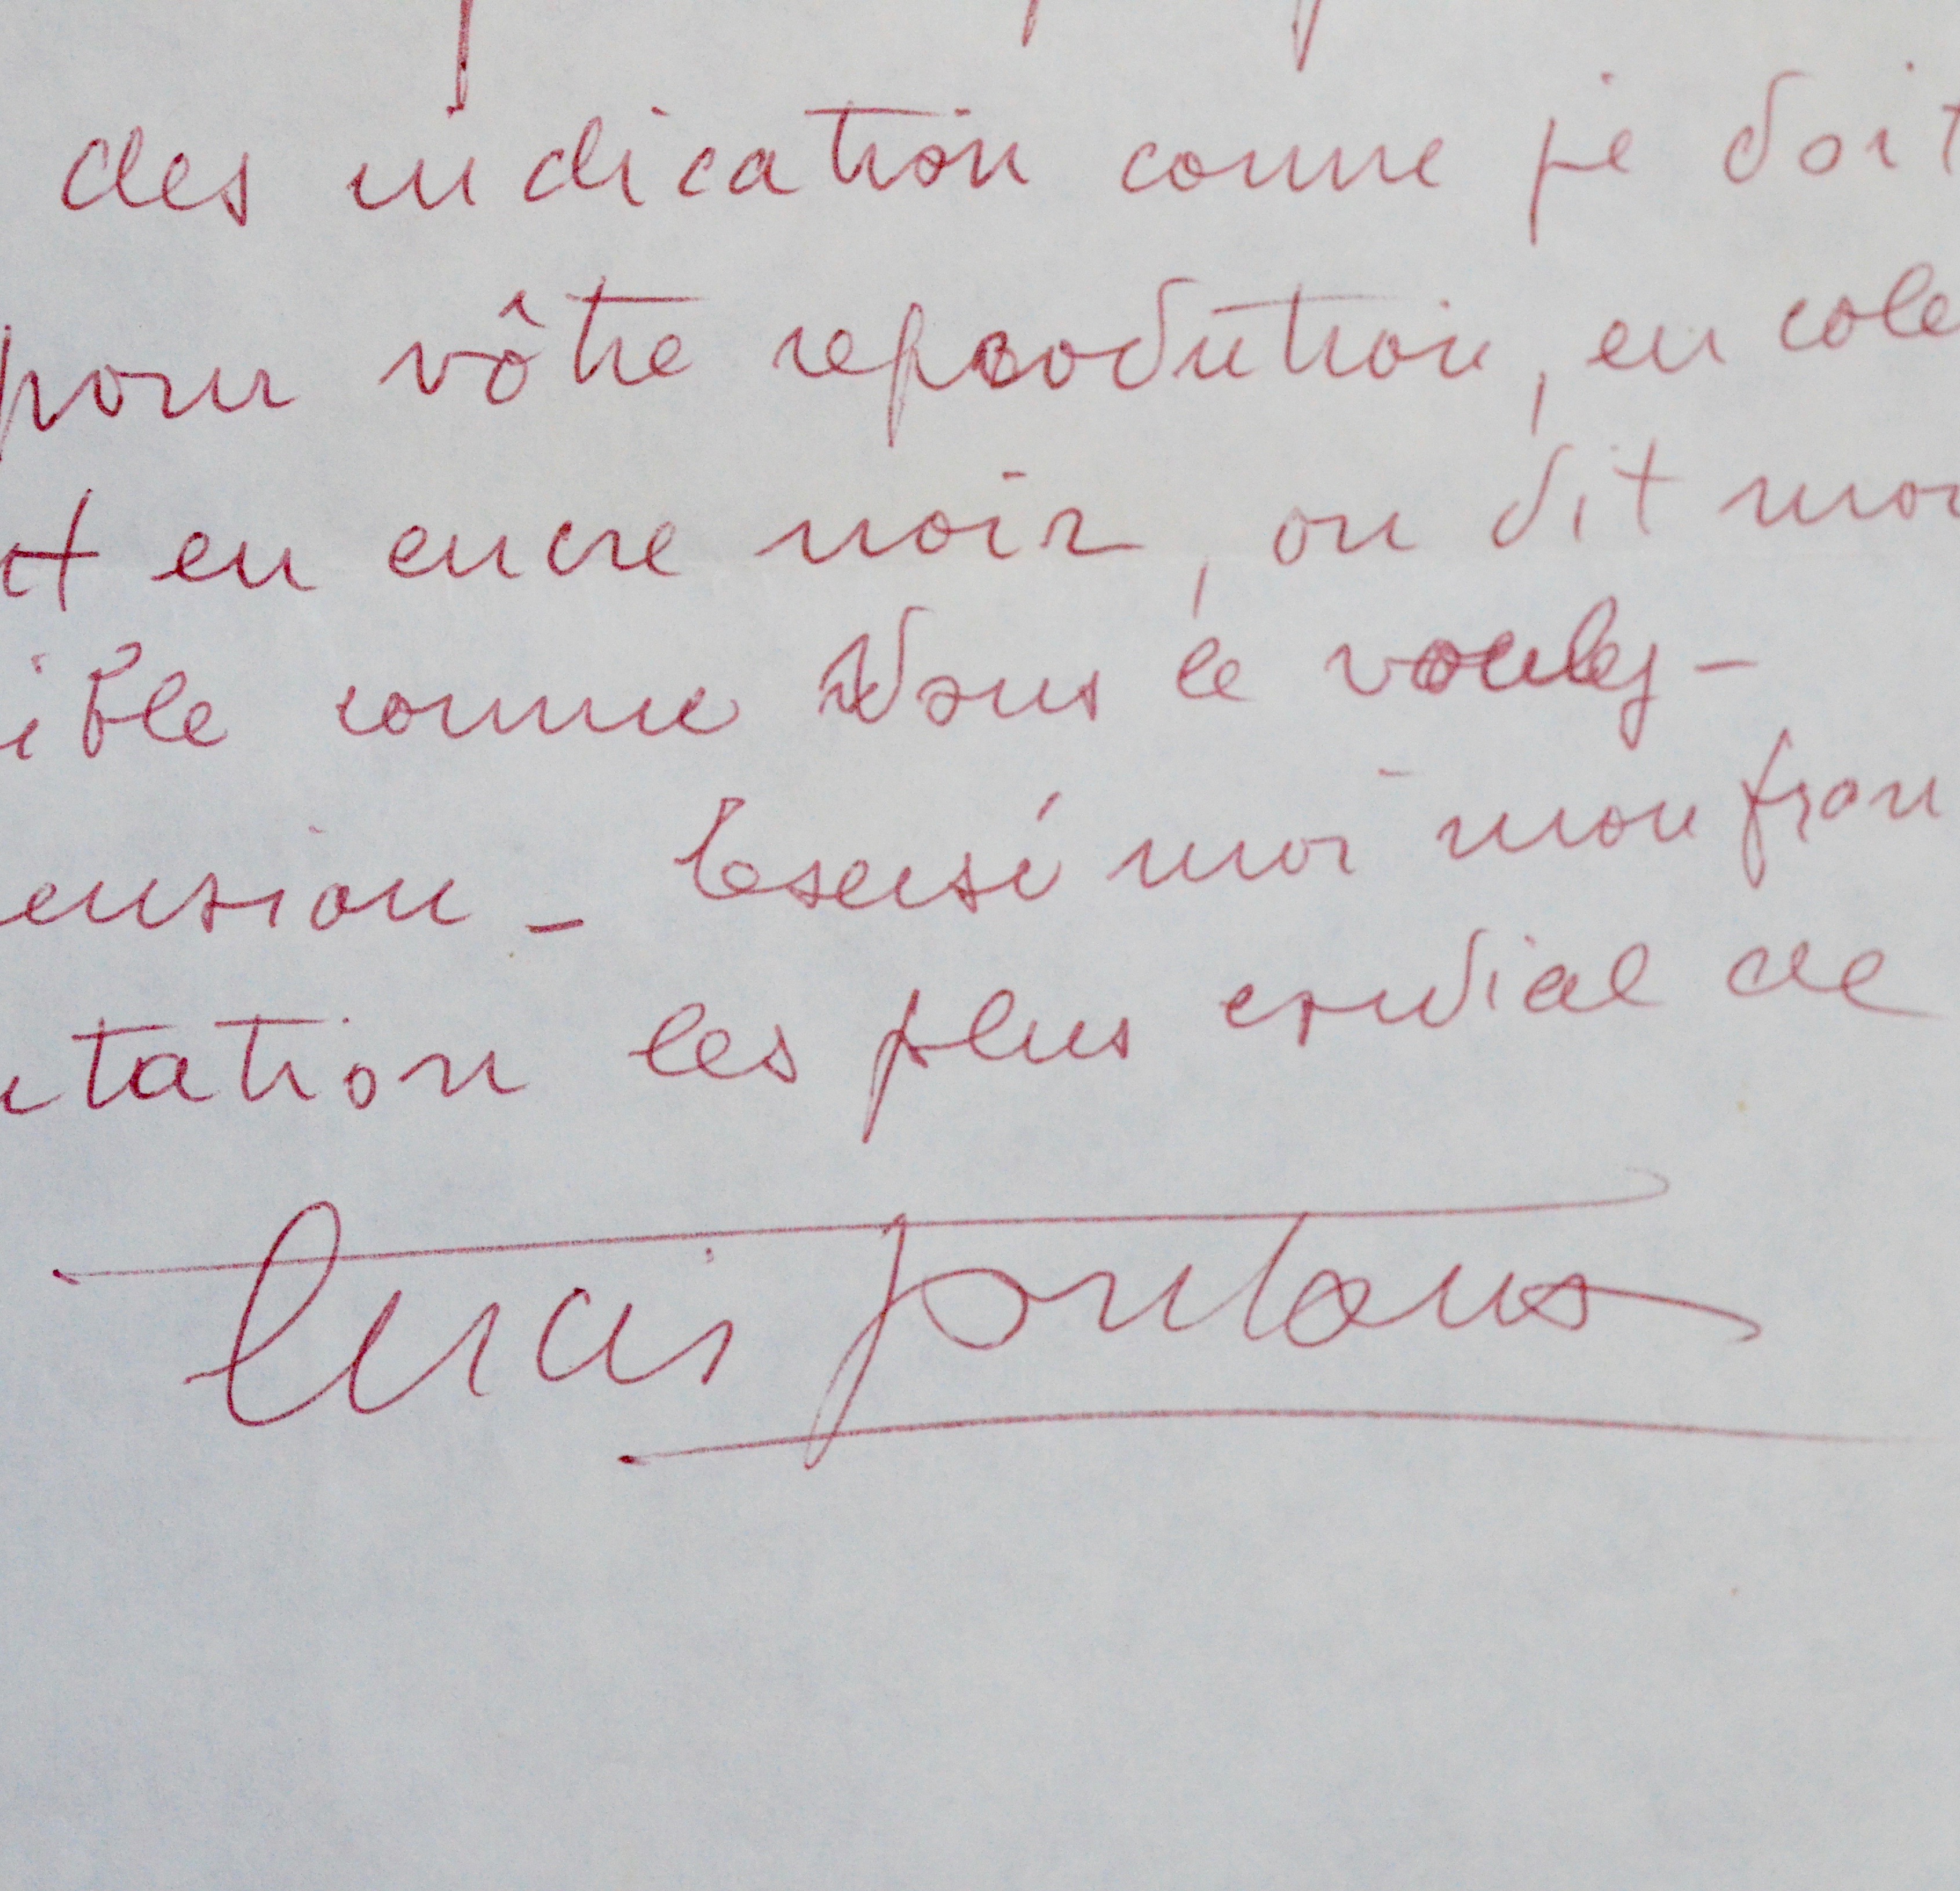 des indication comme je doit
pour vôtre reprodution, en cole
en encre noir, ou dit moi
ible comme Vous le voulez -
ension - Escusé moi mon fran
tation les plus cordial de
Lucio Fontana